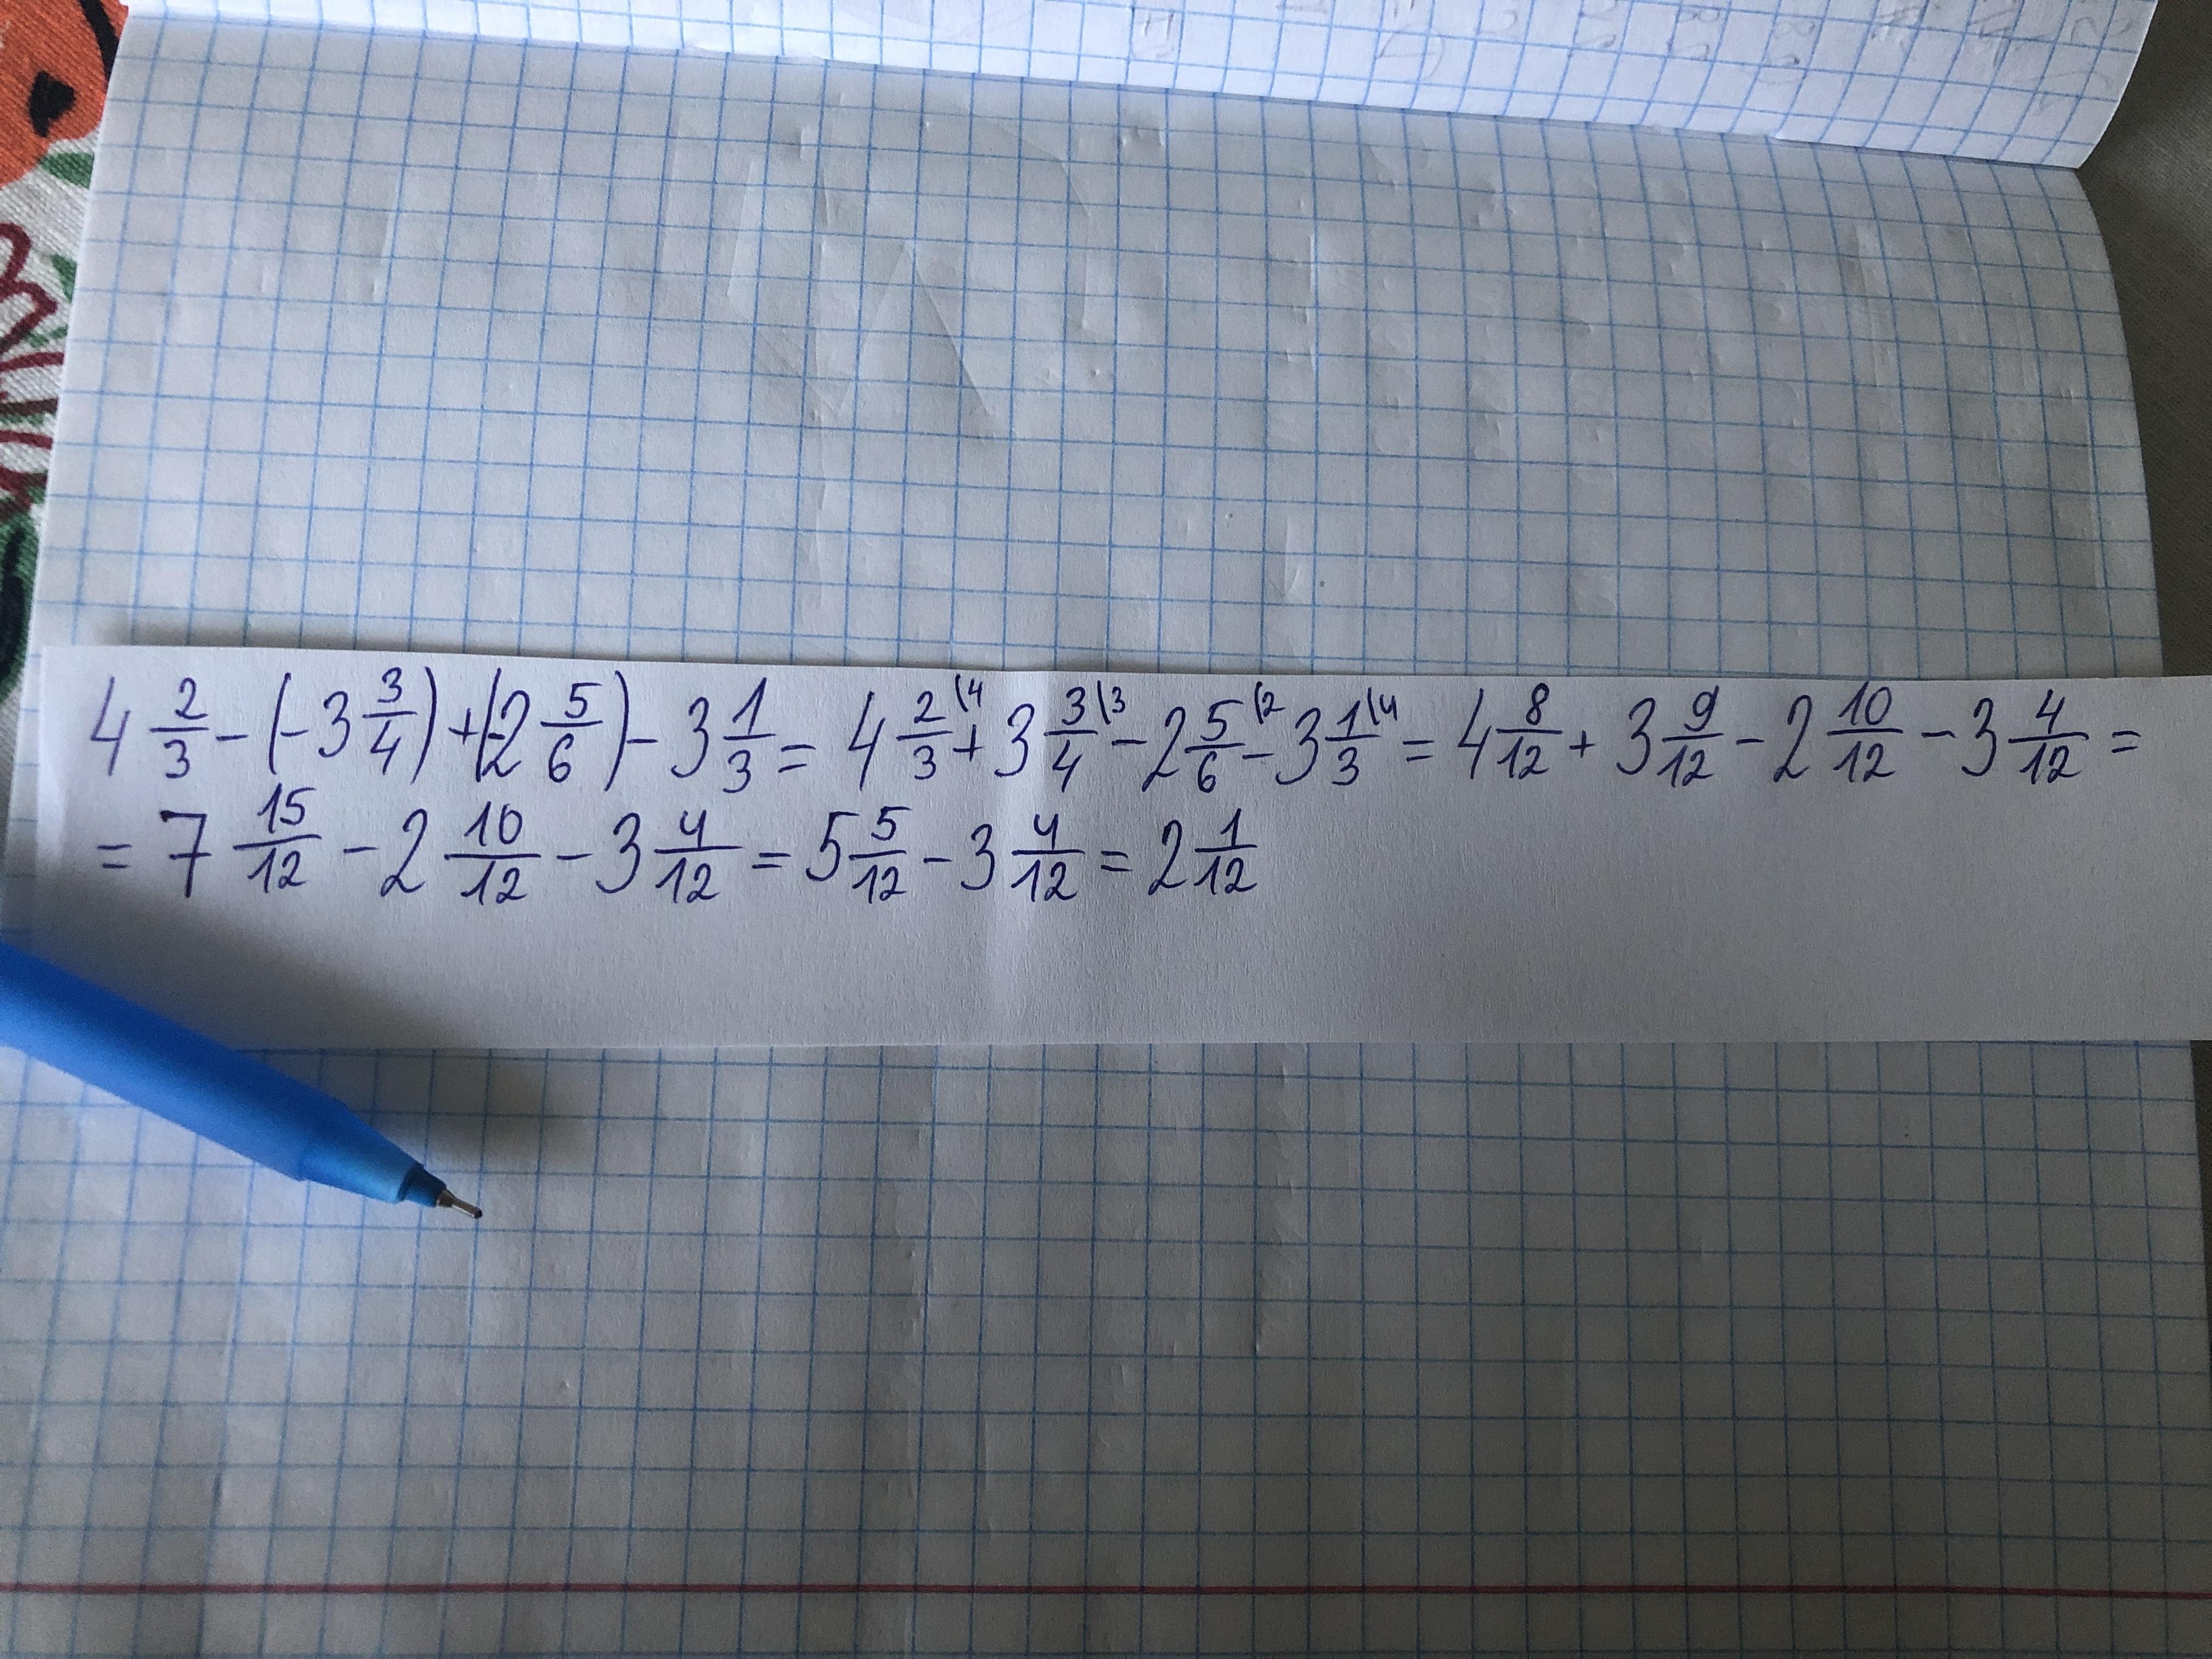 4 2/3 - (-3 3/4) + (-2 5/6) - 3 1/3 = 4 2/3\4 + 3 3/4\3 - 2 5/6\2 - 3 1/3\4 = 4 8/12 + 3 9/12 - 2 10/12 - 3 4/12 =
= 7 15/12 - 2 10/12 - 3 4/12 = 5 5/12 - 3 4/12 = 2 1/12